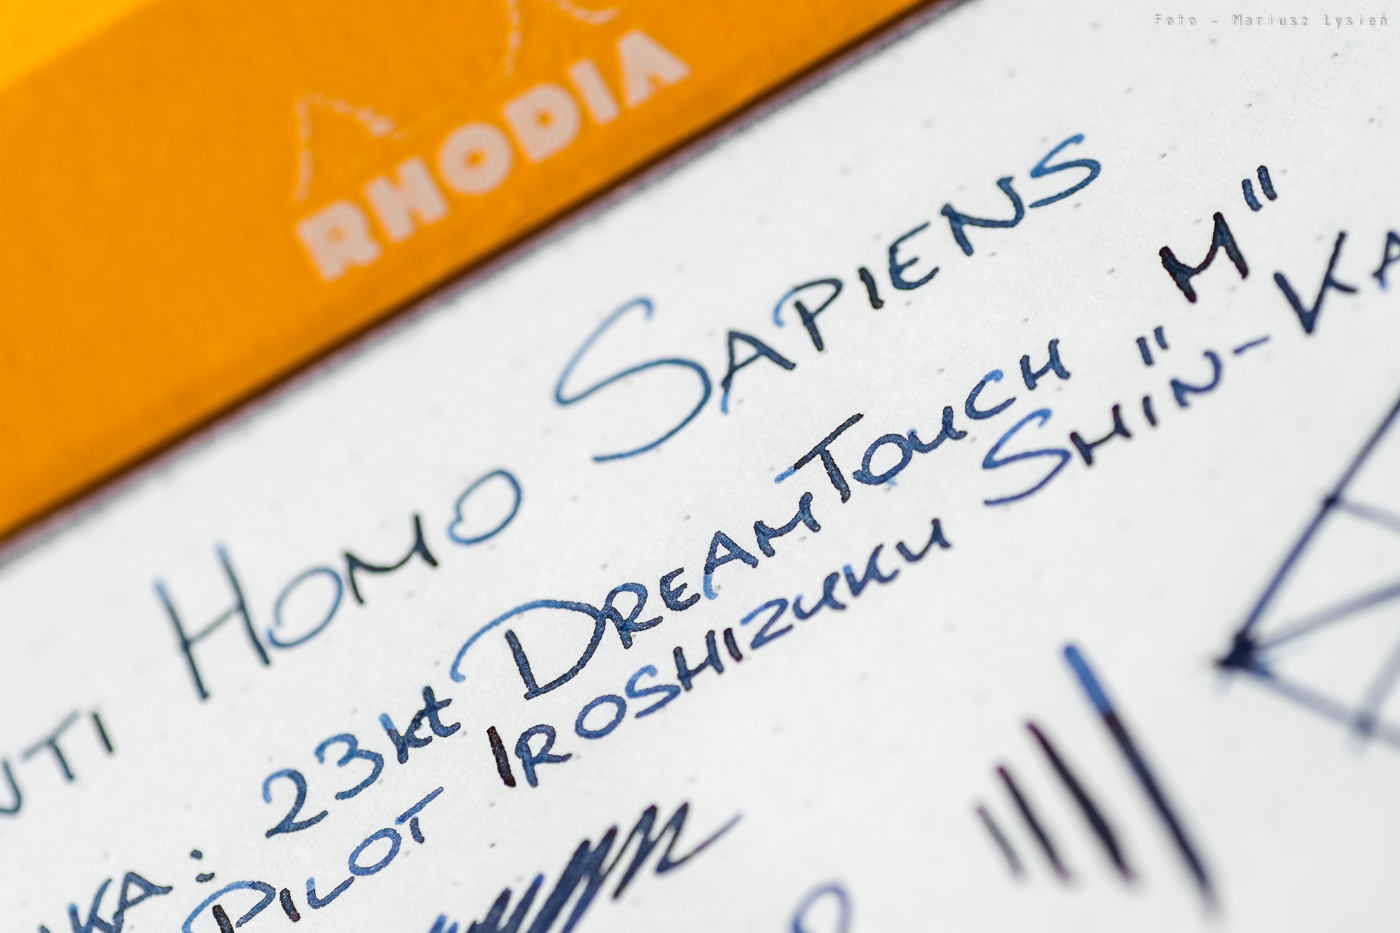 Foto - Mariusz Łysień
RHODIA
NTI Homo Sapiens
KA: 23kt DreamTouch "M"
Pilot Iroshizuku Shin-Ka